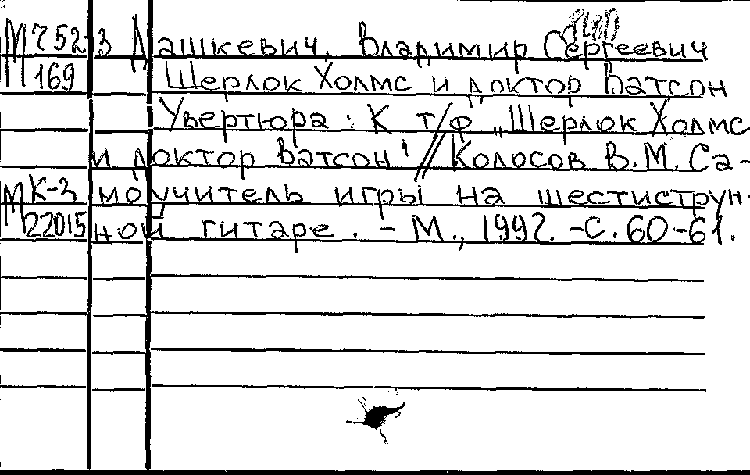 М 752-3 Дашкевич, Владимир Сергеевич
П 169 Шерлок Холмс и доктор Ватсон
Увертюра : К т/ф „Шерлок Холмс
и доктор Ватсон" // Колосов В.М. Са-
МК-3 моучитель игры на шестиструн-
М 22015 ной гитаре. - М., 1992. - С. 60-61.